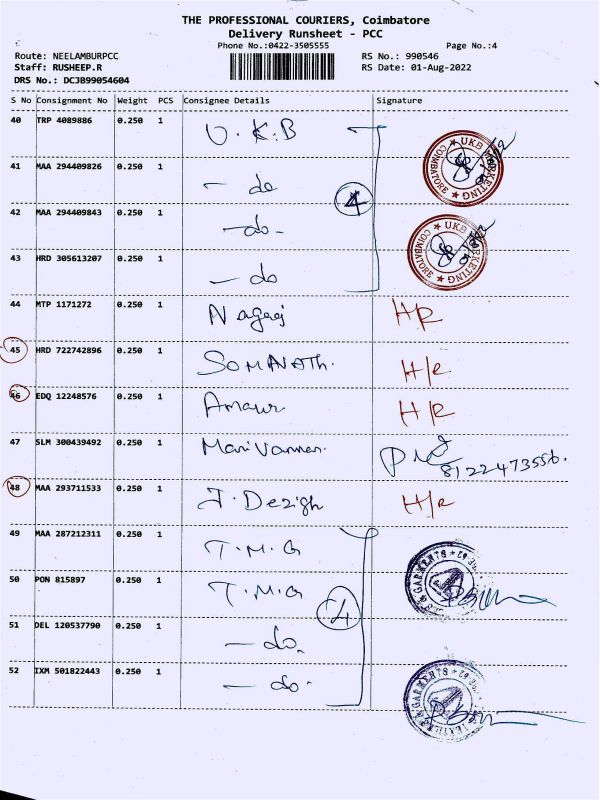 THE PROFESSIONAL COURIERS, Coimbatore
Delivery Runsheet - PCC
Phone No.:0422-3505555
Page No.:4
Route: NEELAMBURPCC
RS No.: 990546
Staff: RUSHEEP.R
RS Date: 01-Aug-2022
DRS No.: DCJB99054604
S No Consignment No Weight PCS Consignee Details Signature
40 TRP 4089886 0.250 1 U.K.B
41 MAA 294409826 0.250 1 - do
42 MAA 294409843 0.250 1 -do-
43 HRD 305613207 0.250 1 - do
4
UKB MARKETING COIMBATORE
UKB MARKETING COIMBATORE
44 MTP 1171272 0.250 1 Nagaraj H/R
45 HRD 722742896 0.250 1 SOMANATh. H/R
46 EDQ 12248576 0.250 1 H/R
47 SLM 300439492 0.250 1 Manivannan. 8122473556.
48 MAA 293711533 0.250 1 J. Dezigh H/R
49 MAA 287212311 0.250 1 T.M.G
50 PON 815897 0.250 1 T.M.G
51 DEL 120537790 0.250 1 - do.
52 IXM 501822443 0.250 1 - do.
4
& GARMENTS
TEXTILES & GARMENTS